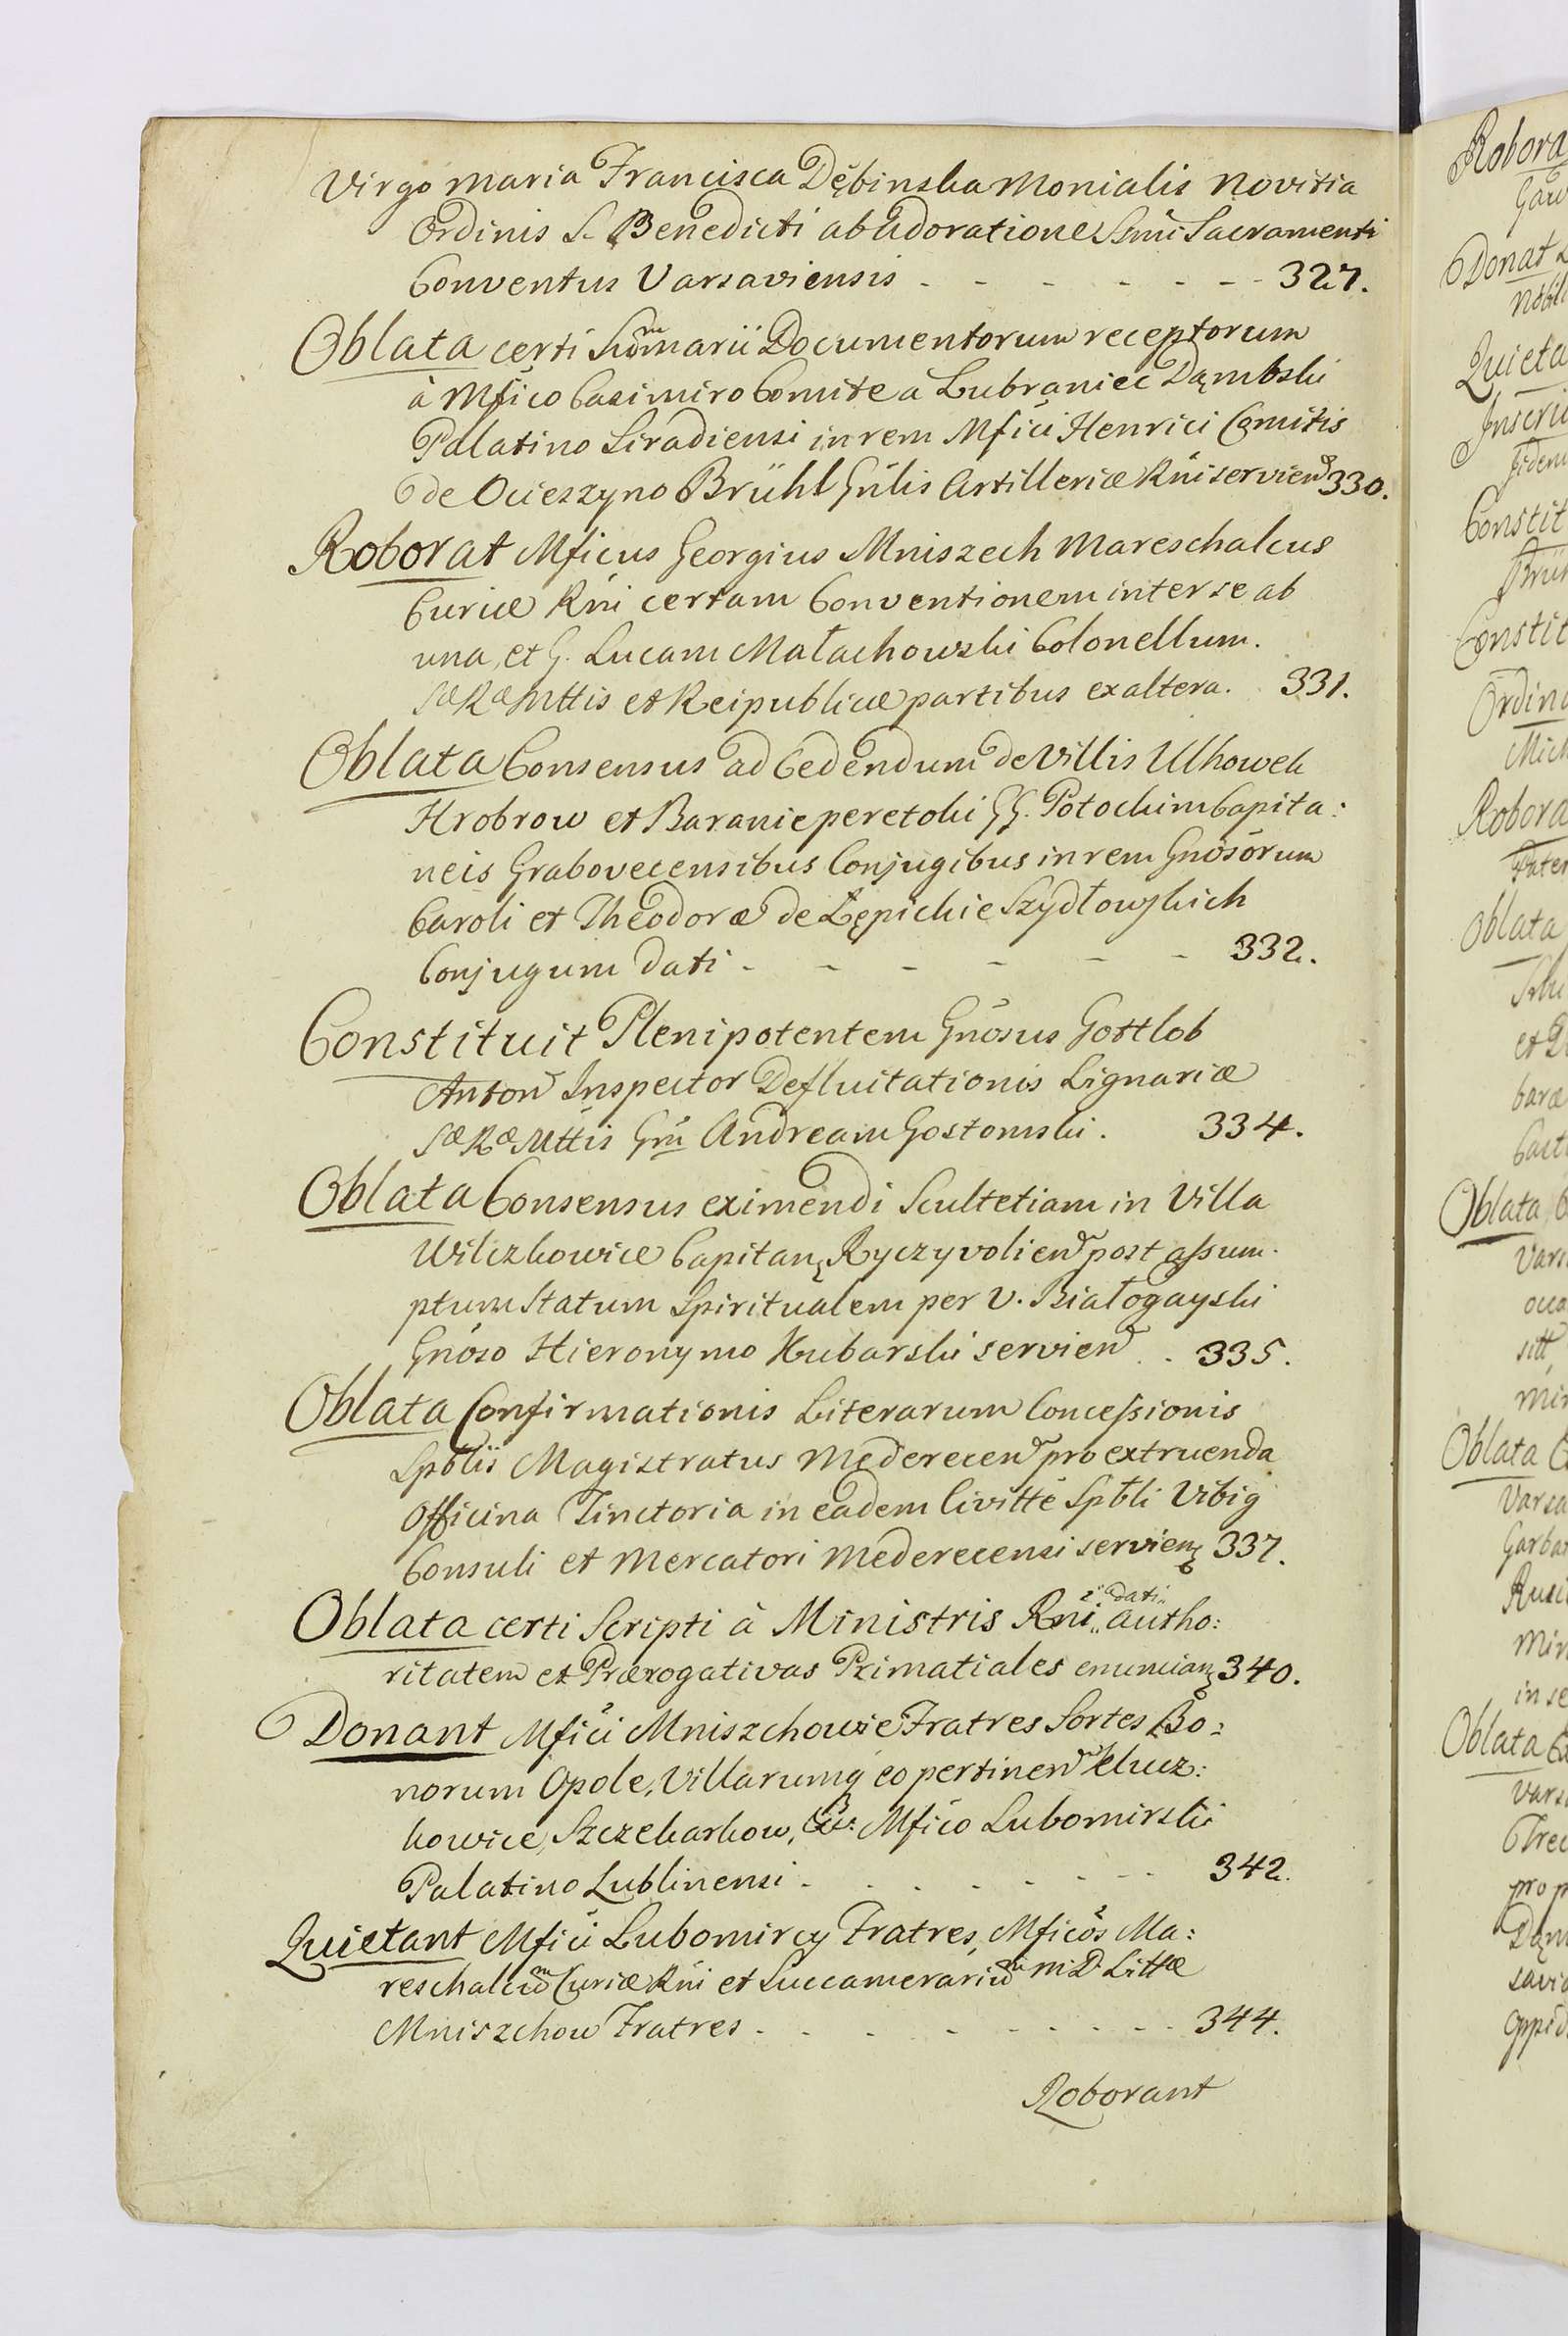 Virgo Maria Francisca Dębinska Monialis Novitia
Ordinis S. Benedicti ab Adoratione Ssmi Sacramenti
Conventus Varsaviensis - - - - - - - 327.
Oblata certi Summarii Documentorum receptorum
à Mfico Casimiro Comite a Lubraniec Dąmbski
Palatino Siradiensi in rem Mfici Henrici Comitis
de Ocieszyno Brühl Gnlis Artilleriæ Rni servien 330.
Roborat Mficus Georgius Mniszech Mareschalcus
Curiæ Rni certam Conventionem inter se ab
una, et G. Lucam Małachowski Colonellum.
Sæ Ræ Mttis et Reipublicæ partibus ex altera. 331.
Oblata Consensus ad Cedendum de Villis Ulhowek
Hrobrow et Baranieperetoki GG. Potockim Capita:
neis Grabovecensibus Conjugibus in rem Gnosorum
Caroli et Theodoræ de Lępickie Szydłowskich
Conjugum dati - - - - - - 332.
Constituit Plenipotentem Gnosus Gottlob
Anton Inspector Defluitationis Lignariæ
Sæ Ræ Mttis Gm Andream Gostomski. 334.
Oblata Consensus eximendi Scultetiam in Villa
Wilczkowice Capitan Ryczyvolien post assum-
ptum Statum Spiritualem per V. Białogayski
Gnoso Hieronymo Kubarski servien . . 335.
Oblata Confirmationis Literarum Concessionis
Spblis Magistratus Mederecen pro extruenda
Officina Tinctoria in eadem Civitte Spbli Vibig
Consuli et Mercatori Mederecensi servien 337.
dati
Oblata certi Scripti à Ministris Rni autho:
ritatem et Prærogativas Primatiales enuncian 340.
Donant Mfici Mniszchowie Fratres Sortes Bo:
norum Opole, Villarumq eo pertinen Klucz:
kowice, Szczekarkow, &c: Mfico Lubomirski
Palatino Lublinensi - - - - - - - 342.
Quietant Mfici Lubomircy Fratres, Mficos Ma:
reschalcum Curiæ Rni et Succamerarium M. D. Littæ
Mniszchow Fratres - - - - - - - - 344.
Roborant
Robora
Donat
Nobil
Quieta
Inscri
Constit
Brüh
Constit
Ordina
Mich
Robora
Oblata
et D
baræ
Oblata
Oblata
Varsa
Garbar
in se
Oblata
Vars
pro p
Dąm
savi
Oppid